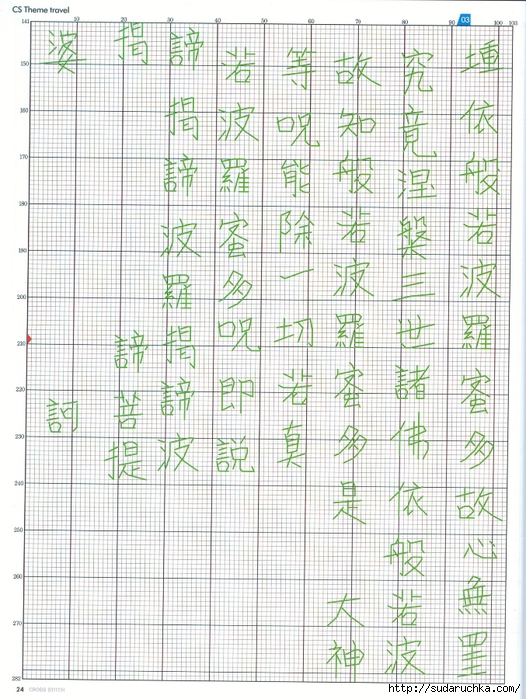 CS Theme travel
03
10 20 30 40 50 60 70 80 90 100 103
141
150
160
170
180
190
200
210
220
230
240
250
260
270
282
埵依般若波羅蜜多故心無罣
究竟涅槃三世諸佛依般若波
故知般若波羅蜜多是大神
等呪能除一切若真
若波羅蜜多呪即説
諦揭諦波羅揭諦波
揭諦菩提
婆訶
24 CROSS STITCH
http://sudaruchka.com/